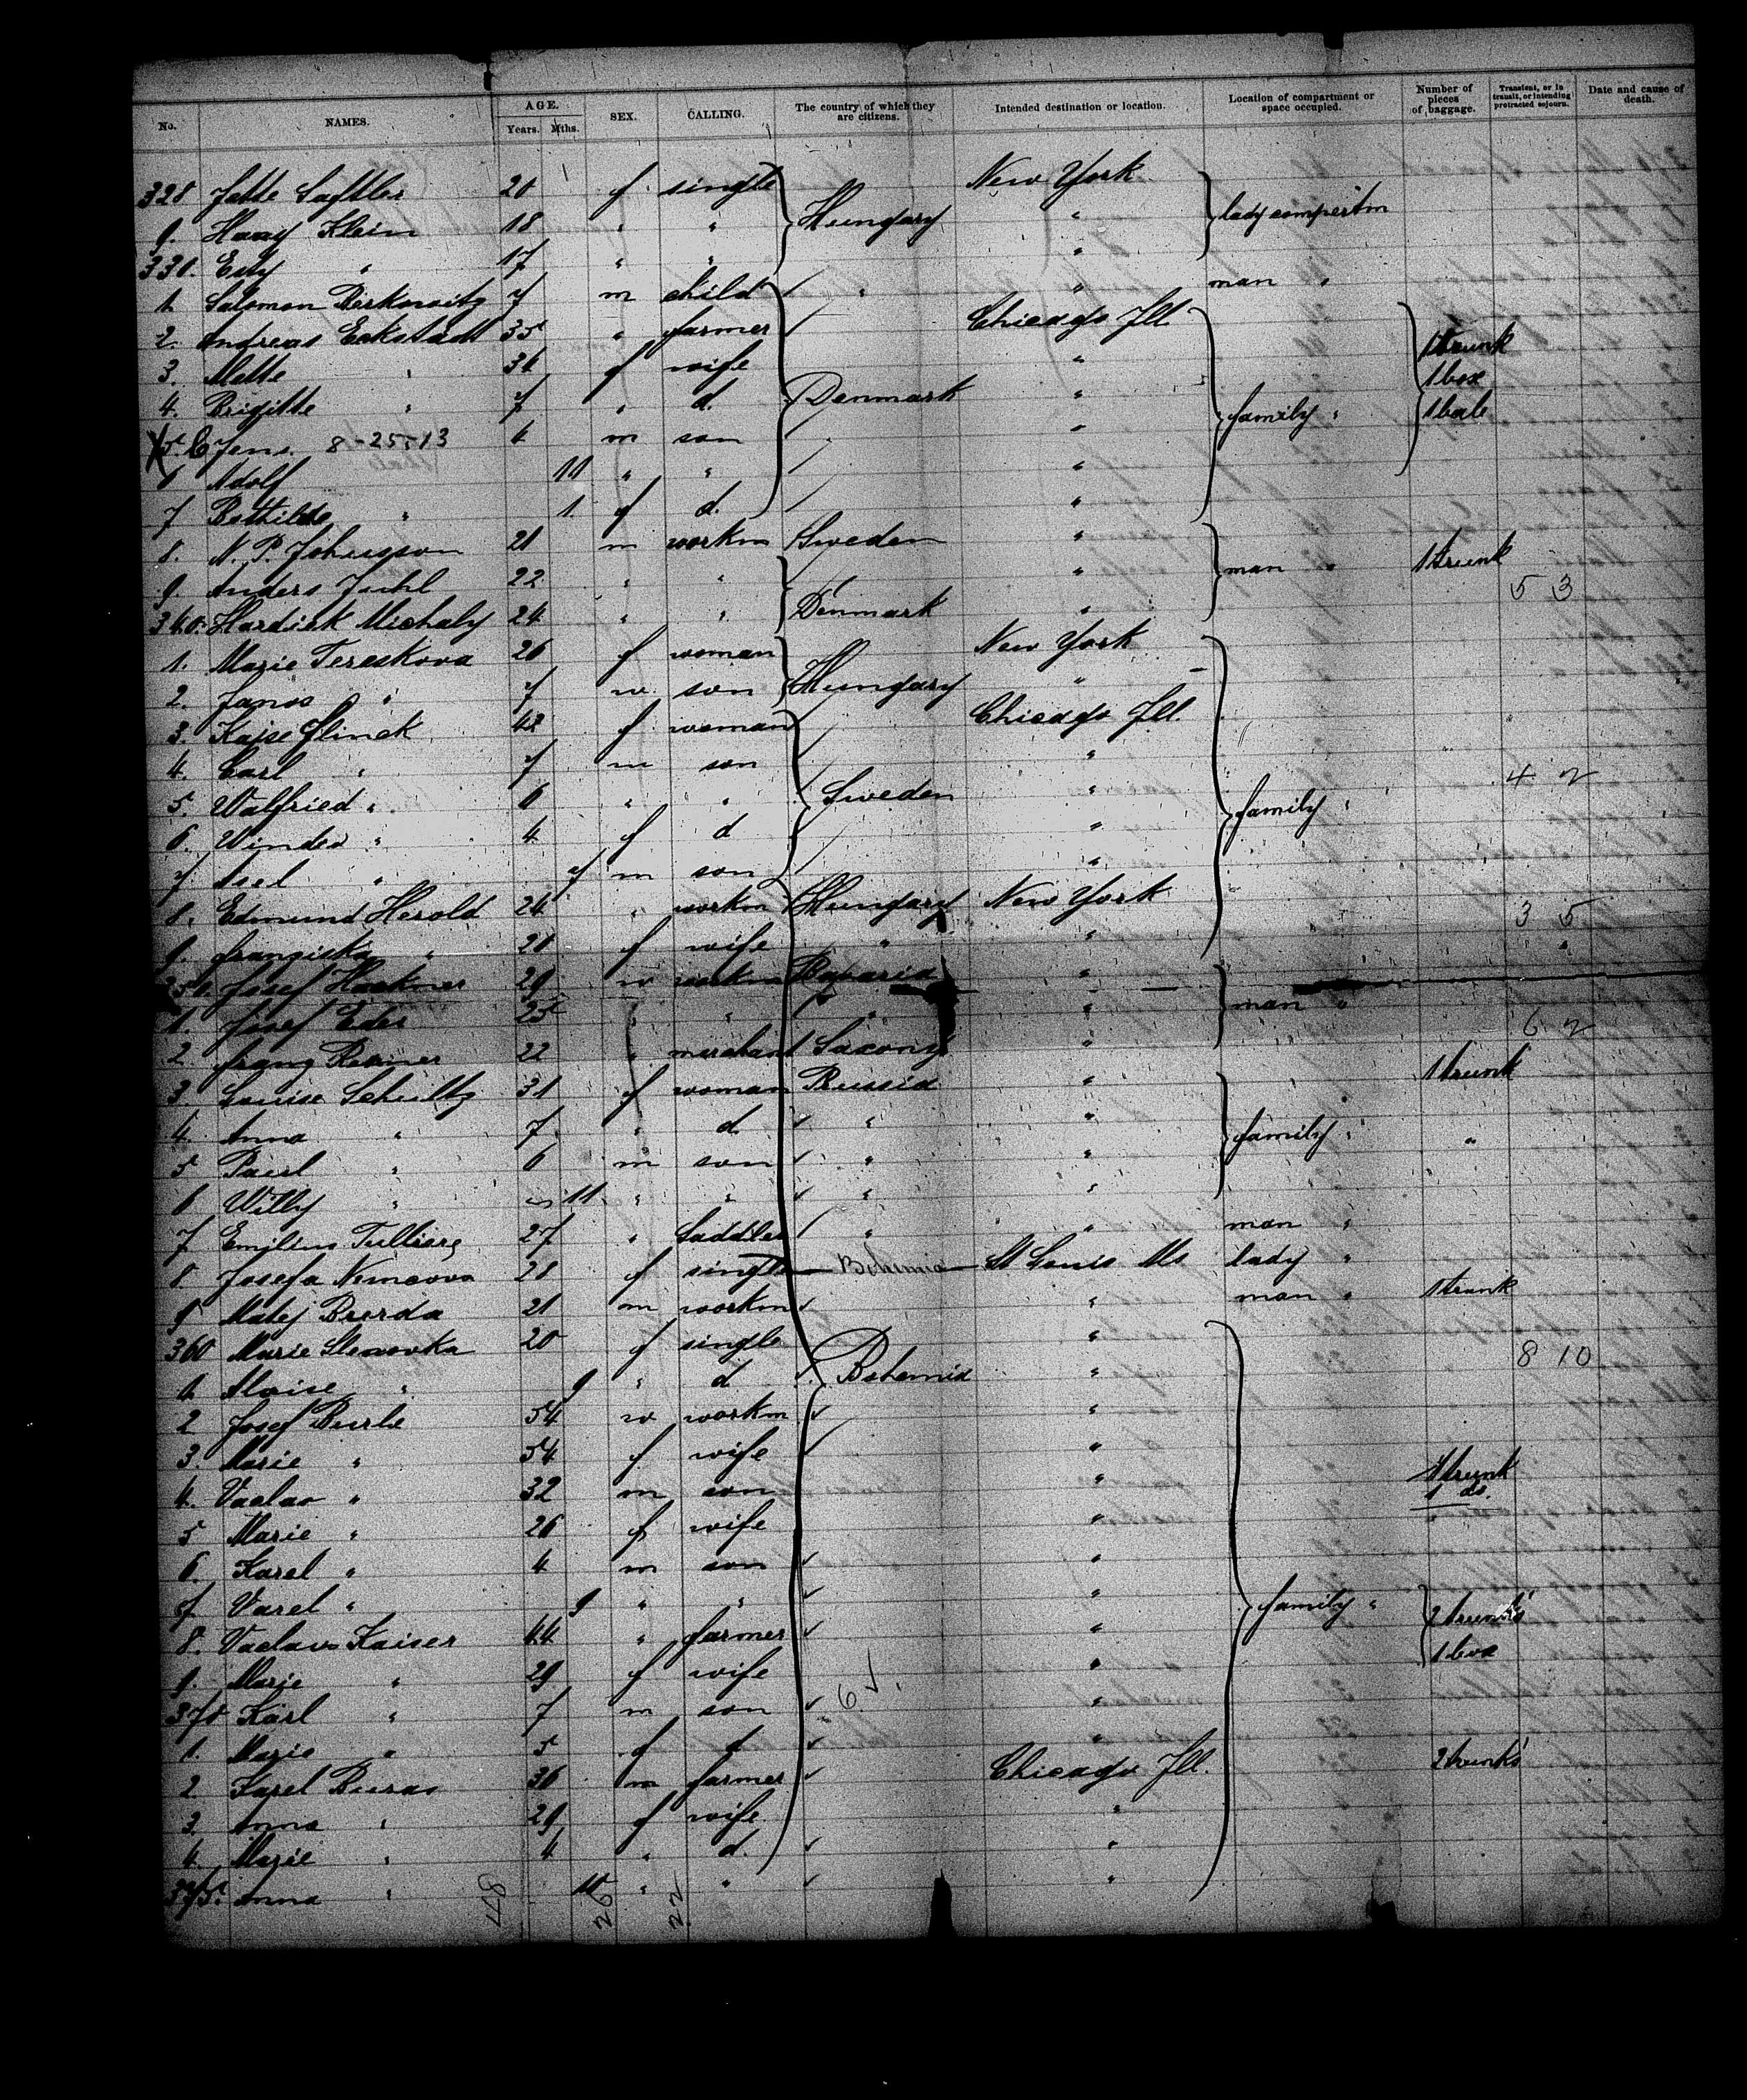 No. NAMES. AGE. Years. Mths. SEX. CALLING. The country of which they are citizens. Intended destination or location. Location of compartment or space occupied. Number of pieces of baggage. Transient, or in transit, or intending protracted sojourn. Date and cause of death.
328 Jette Sattler 20 f single New York
9. Klein 18 " " Hungary " lady compertm
330. Esty " 17 " " "
1. Salomon Berkovitz 7 m child " " man "
2. Andreas Eckstädt 35 " farmer Chicago Ill.
3. Mette " 31 f wife " 1 trunk
4. Brigitte " 7 " d. Denmark " family " 1 box
5. C Jens 8-25-13 4 m son "
6 Adolf 11 " " "
7 Bothilde " 1. f d. "
8. N. P. Johnsson 21 m workm Sweden "
9. Anders Juhl 22 " " " man " 1 trunk
340. Hardick Michaly 24 " " Denmark " 5 3
1. Marie Tereskova 26 f woman New York
2. Janos " 7 m. son Hungary "
3. Kajse Flinck 42 f. woman Chicago Ill.
4. Carl " 7 m son "
5. Walfried " 6 " " Sweden " family " 4 2
6. " 4 f d "
7 Axel " 7 m son "
8. Edmund Herold 24 " workm Hungary New York
9. Franziska " 20 f wife " " 3 5
Josef 29 m workm Bavaria "
1. Josef Eder 25 " " " " man "
2 Franz 22 " merchant Saxony " 6 2
3 Louise Schultz 31 f woman Russia " 1 trunk
4. Anna " 7. " d " " family "
5 Paul " 6 m son " " "
6 Willy " 11 " " " "
7 Emilius 27 " Saddler " " man "
8. Josefa Nemcova 28 f single Bohemia St Louis Mo lady "
9 Matej 21 m workm " man " 1 trunk
360 Marie 20 f single "
1. " 9 " d Bohemia " 8 10
2 Josef 54 m workm "
3. Marie " 54 f wife "
4. Vaclav " 32 m son " 1 trunk
5 Marie " 26 f wife " 1 do.
6. Karel " 4 m son "
7 " 9 " " " family "
8. Vaclav Kaiser 44 " farmer " 2 trunks
9. Marie " 29 f wife " 1 box
370 Karl " 7 m son 6 "
1. Marie " 5 f d "
2. Karel 36 m farmer Chicago Ill. 2 trunks
3. Anna " 29 f wife "
4. Marie " 4 " d. "
375. Anna " " " "
48 26 22